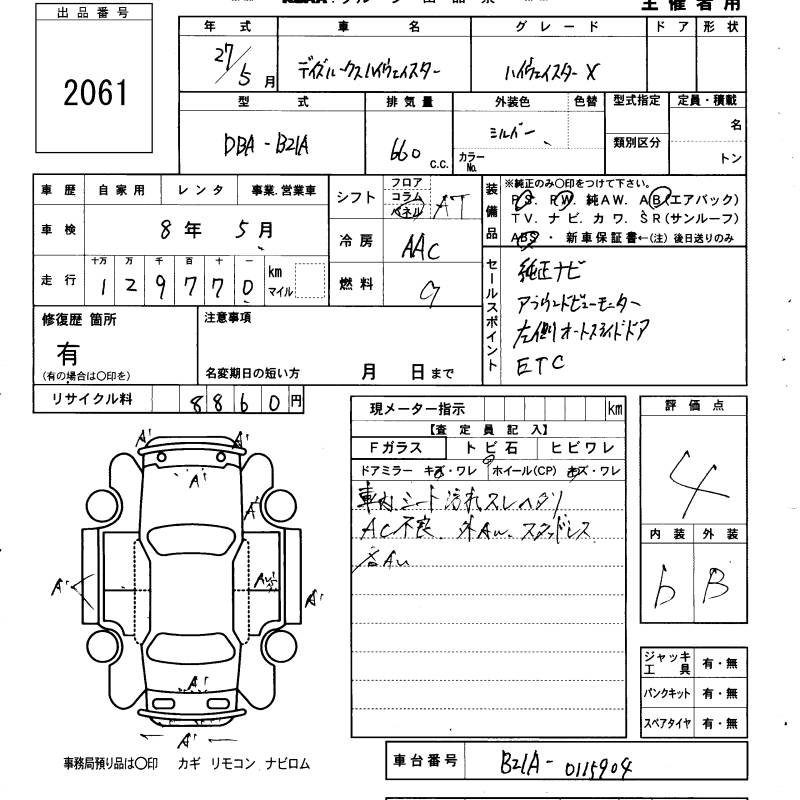 主催者用
出品番号
2061
年式 車名 グレード ドア 形状
27/5月 デイズルークスハイウェイスター ハイウェイスターX
型式 排気量 外装色 色替 型式指定 定員・積載
DBA-B21A 660 c.c. シルバー カラーNo. 類別区分 名 トン
車歴 自家用 レンタ 事業.営業車
シフト フロア コラム パネル AT
装備品 ※純正のみ〇印をつけて下さい。
PS. PW. 純AW. AB(エアバック)
TV. ナビ. カワ. SR(サンルーフ)
ABS・新車保証書←(注)後日送りのみ
車検 8年 5月
冷房 AAC
走行 十万 万 千 百 十 一 km マイル
129770
燃料 G
セールスポイント
純正ナビ
アラウンドビューモニター
左側オートスライドドア
ETC
修復歴 箇所
有
(有の場合は〇印を)
注意事項
名変期日の短い方 月 日まで
リサイクル料 8860円
現メーター指示 km
【査定員記入】
Fガラス トビ石 ヒビワレ
ドアミラー キズ・ワレ ホイール(CP) キズ・ワレ
車内.シート汚れスレヘタリ
AC不良. 外AU. スタッドレス
各AU
評価点
4
内装 外装
b B
ジャッキ 工具 有・無
パンクキット 有・無
スペアタイヤ 有・無
A' A'
A'
A'
AU
A' A'
A'
A'
事務局預り品は〇印 カギ リモコン ナビロム
車台番号 B21A-0115904